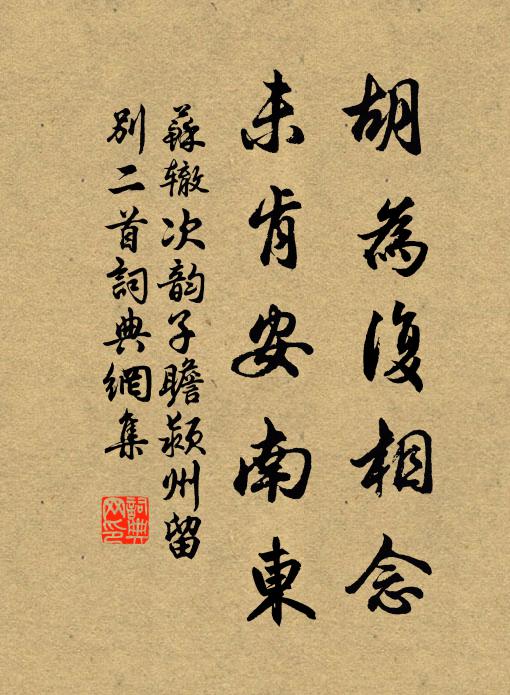 胡為復相念
未肯安南東
蘇辙次韵子瞻颍州留
别二首詞典網集
詞典
网印